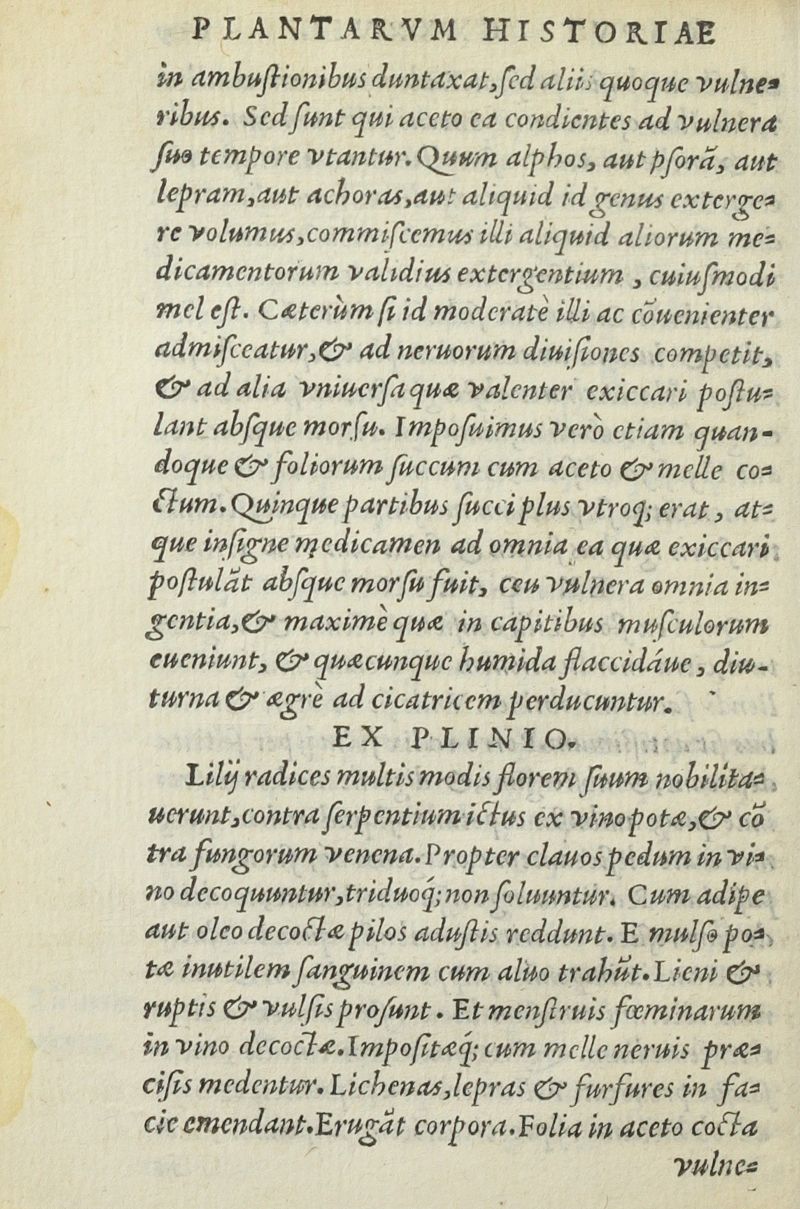 PLANTARVM HISTORIAE
in ambustionibus duntaxat, sed aliis quoque vulne-
ribus. Sed sunt qui aceto ea condientes ad vulnera
suo tempore vtantur. Quum alphos, aut psorā, aut
lepram, aut achoras, aut aliquid id genus exterge-
re volumus, commiscemus illi aliquid aliorum me-
dicamentorum validius extergentium, cuiusmodi
mel est. Cæterùm si id moderatè illi ac cōuenienter
admisceatur, & ad neruorum diuisiones competit,
& ad alia vniuersa quæ valenter exiccari postu-
lant absque morsu. Imposuimus verò etiam quan-
doque & foliorum succum cum aceto & melle co-
ctum. Quinque partibus succi plus vtroq; erat, at-
que insigne medicamen ad omnia ea quæ exiccari
postulāt absque morsu fuit, ceu vulnera omnia in-
gentia, & maximè quæ in capitibus musculorum
eueniunt, & quæcunque humida flaccidáue, diu-
turna & ægrè ad cicatricem perducuntur.
EX PLINIO.
Lilij radices multis modis florem suum nobilita-
uerunt, contra serpentium ictus ex vino potæ, & cō
tra fungorum venena. Propter clauos pedum in vi-
no decoquuntur, triduoq́; non soluuntur. Cum adipe
aut oleo decoctæ pilos adustis reddunt. E mulso po-
tæ inutilem sanguinem cum aluo trahūt. Lieni &
ruptis & vulsis prosunt. Et menstruis fœminarum
in vino decoctæ. Impositæq́; cum melle neruis præ-
cisis medentur. Lichenas, lepras & furfures in fa-
cie emendant. Erugāt corpora. Folia in aceto cocta
vulne-